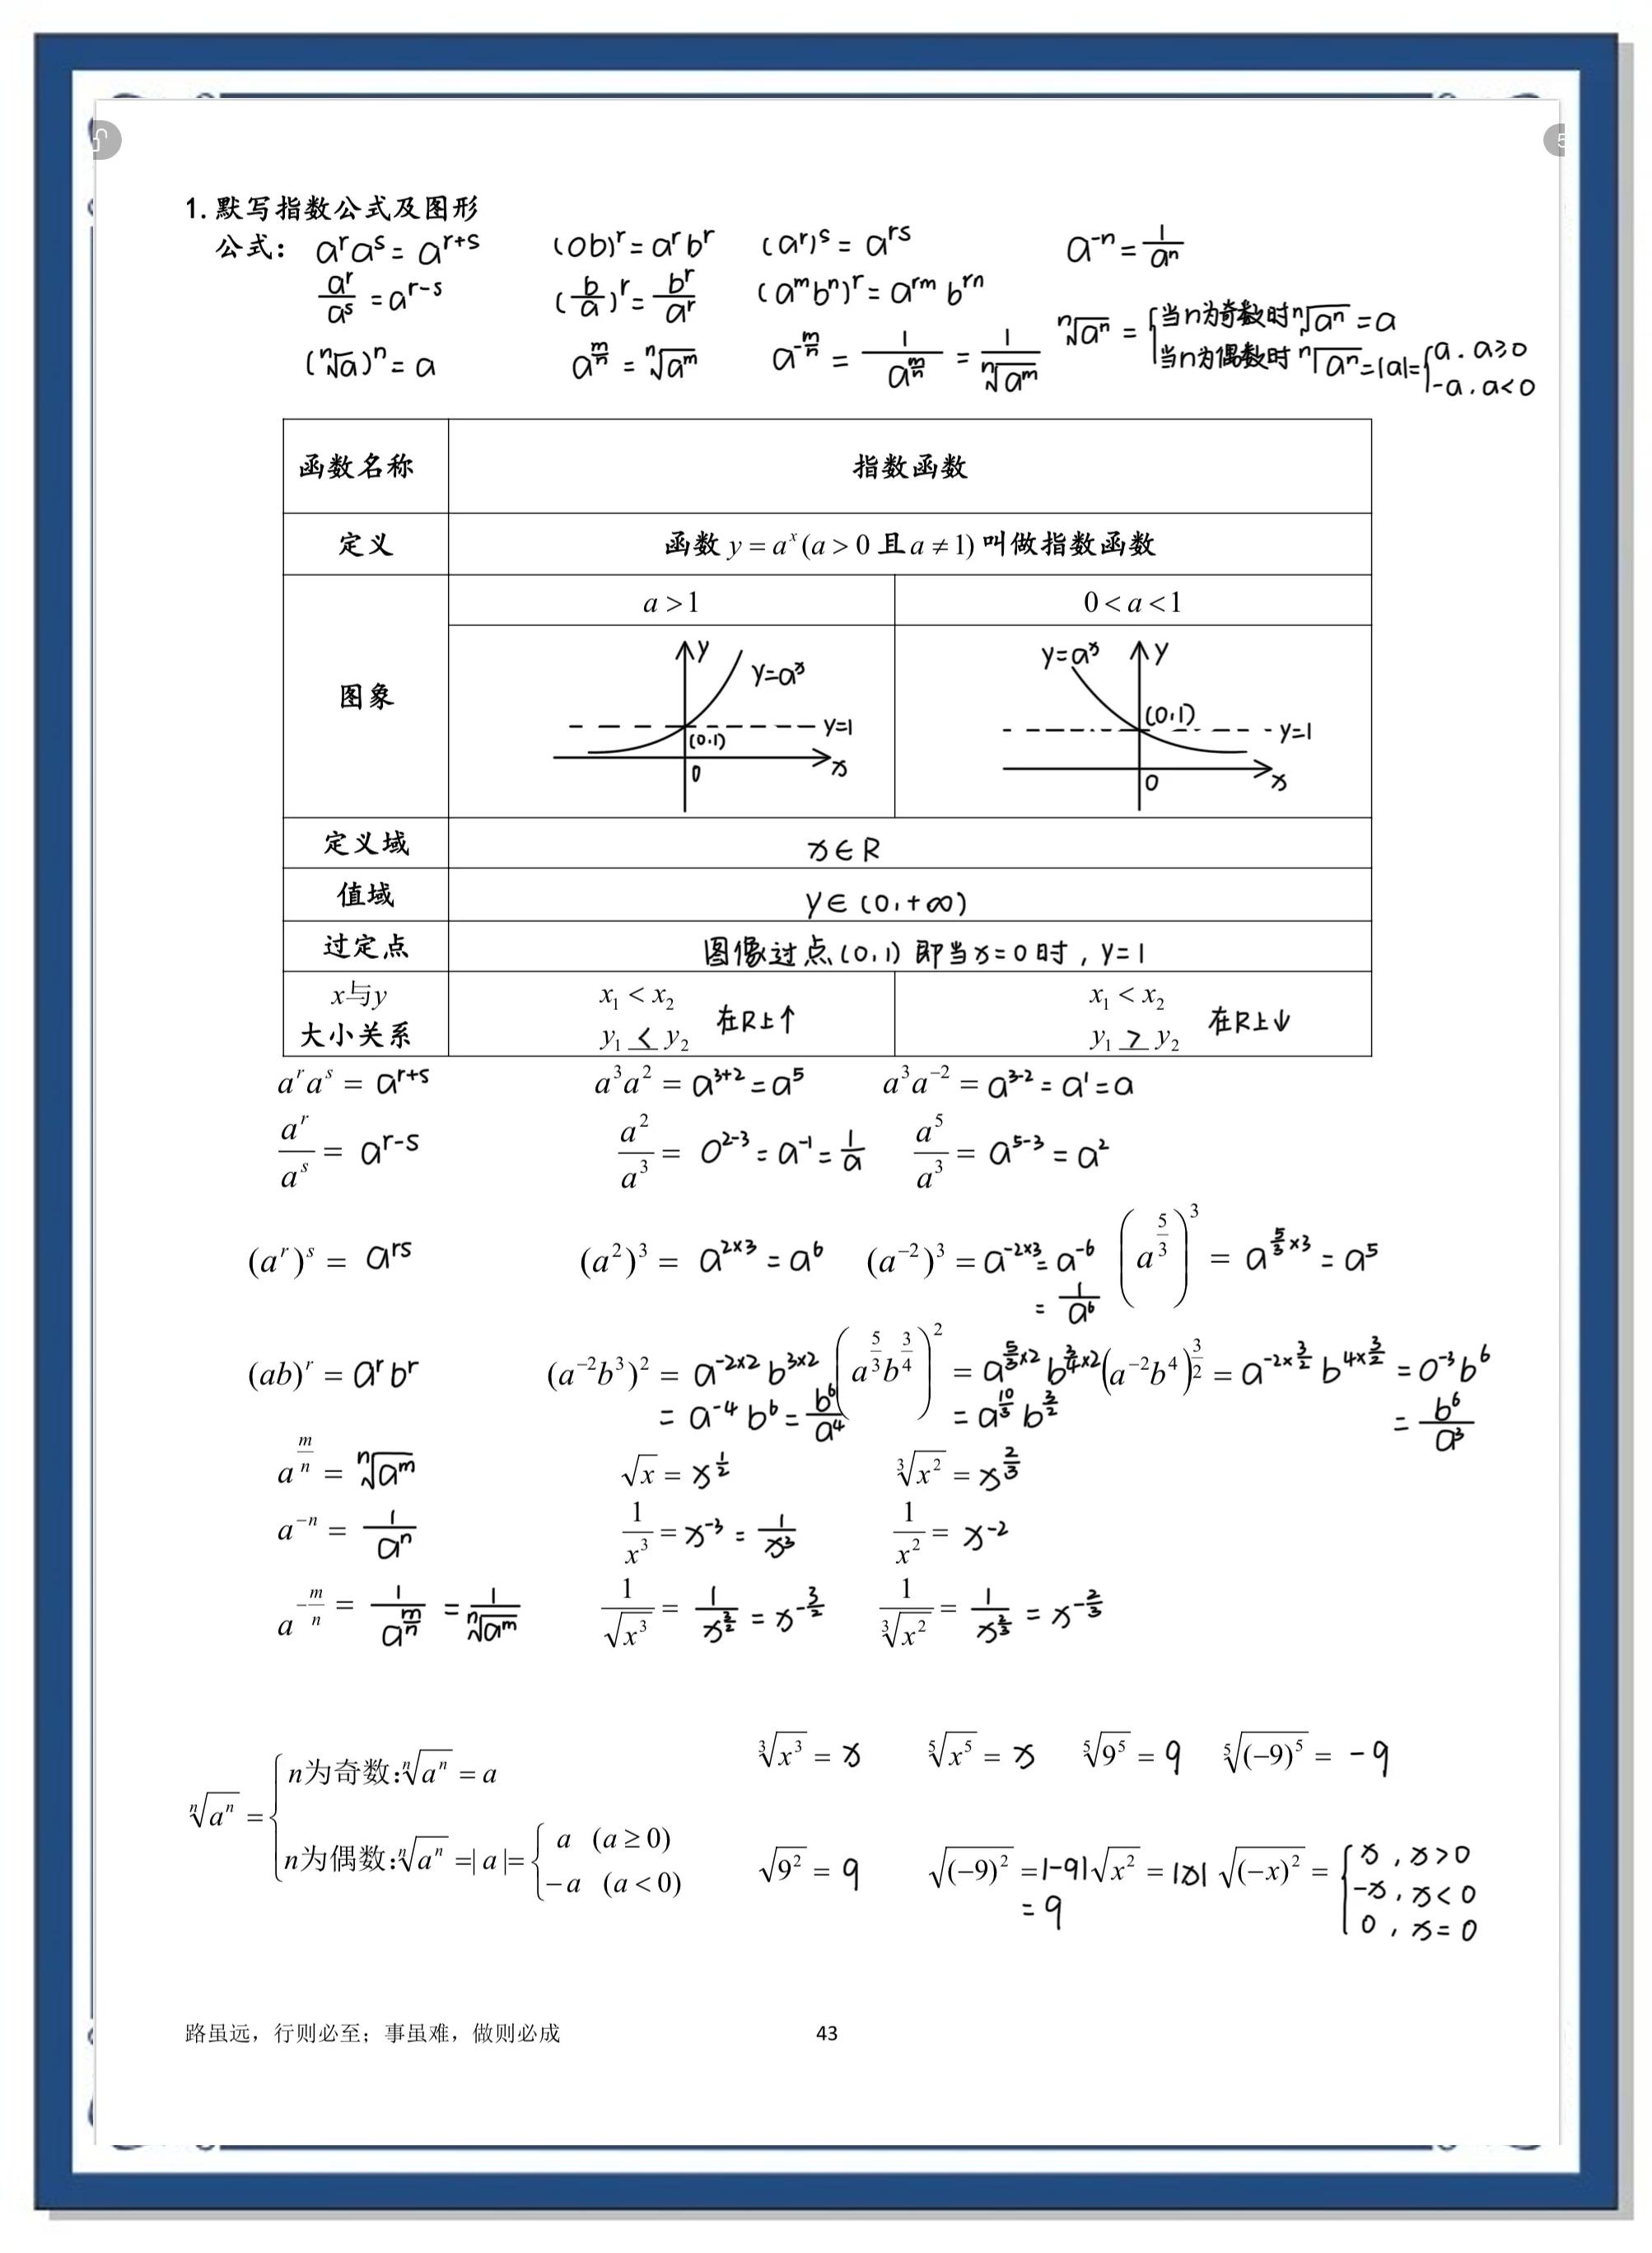 1. 默写指数公式及图形
公式： aʳaˢ = aʳ⁺ˢ (ab)ʳ = aʳbʳ (aʳ)ˢ = aʳˢ a⁻ⁿ = 1/aⁿ
aʳ/aˢ = aʳ⁻ˢ (b/a)ʳ = bʳ/aʳ (aᵐbⁿ)ʳ = aʳᵐbʳⁿ
ⁿ√aⁿ = { 当n为奇数时 ⁿ√aⁿ = a
当n为偶数时 ⁿ√aⁿ = |a| = { a, a≥0
-a, a<0
(ⁿ√a)ⁿ = a a^(m/n) = ⁿ√aᵐ a^(-m/n) = 1/a^(m/n) = 1/ⁿ√aᵐ
函数名称 指数函数
定义 函数 y = aˣ (a > 0 且 a ≠ 1) 叫做指数函数
图象 a > 1 0 < a < 1
y y=aˣ y=1 (0,1) 0 x
y=aˣ y (0,1) y=1 0 x
定义域 x∈R
值域 y∈(0,+∞)
过定点 图像过点(0,1) 即当x=0时, y=1
x与y
大小关系
x₁ < x₂
y₁ < y₂ 在R上↑
x₁ < x₂
y₁ > y₂ 在R上↓
aʳaˢ = aʳ⁺ˢ a³a² = a³⁺² = a⁵ a³a⁻² = a³⁻² = a¹ = a
aʳ/aˢ = aʳ⁻ˢ a²/a³ = a²⁻³ = a⁻¹ = 1/a a⁵/a³ = a⁵⁻³ = a²
(aʳ)ˢ = aʳˢ (a²)³ = a^(2×3) = a⁶ (a⁻²)³ = a^(-2×3) = a⁻⁶ (a^(5/3))³ = a^(5/3×3) = a⁵
= 1/a⁶
(ab)ʳ = aʳbʳ (a⁻²b³)² = a^(-2×2) b^(3×2) (a^(5/3)b^(3/4))² = a^(5/3×2) b^(3/4×2) (a⁻²b⁴)^(3/2) = a^(-2×3/2) b^(4×3/2) = a⁻³b⁶
= a⁻⁴b⁶ = b⁶/a⁴ = a^(10/3) b^(3/2) = b⁶/a³
a^(m/n) = ⁿ√aᵐ √x = x^(1/2) ³√x² = x^(2/3)
a⁻ⁿ = 1/aⁿ 1/x³ = x⁻³ = 1/x³ 1/x² = x⁻²
a^(-m/n) = 1/a^(m/n) = 1/ⁿ√aᵐ 1/√x³ = 1/x^(3/2) = x^(-3/2) 1/³√x² = 1/x^(2/3) = x^(-2/3)
ⁿ√aⁿ = { n为奇数：ⁿ√aⁿ = a
n为偶数：ⁿ√aⁿ = |a| = { a (a ≥ 0)
-a (a < 0)
³√x³ = x ⁵√x⁵ = x ⁵√9⁵ = 9 ⁵√(-9)⁵ = -9
√9² = 9 √(-9)² = |-9| √x² = |x| √(-x)² = { x, x>0
= 9 -x, x<0
0, x=0
路虽远，行则必至；事虽难，做则必成 43